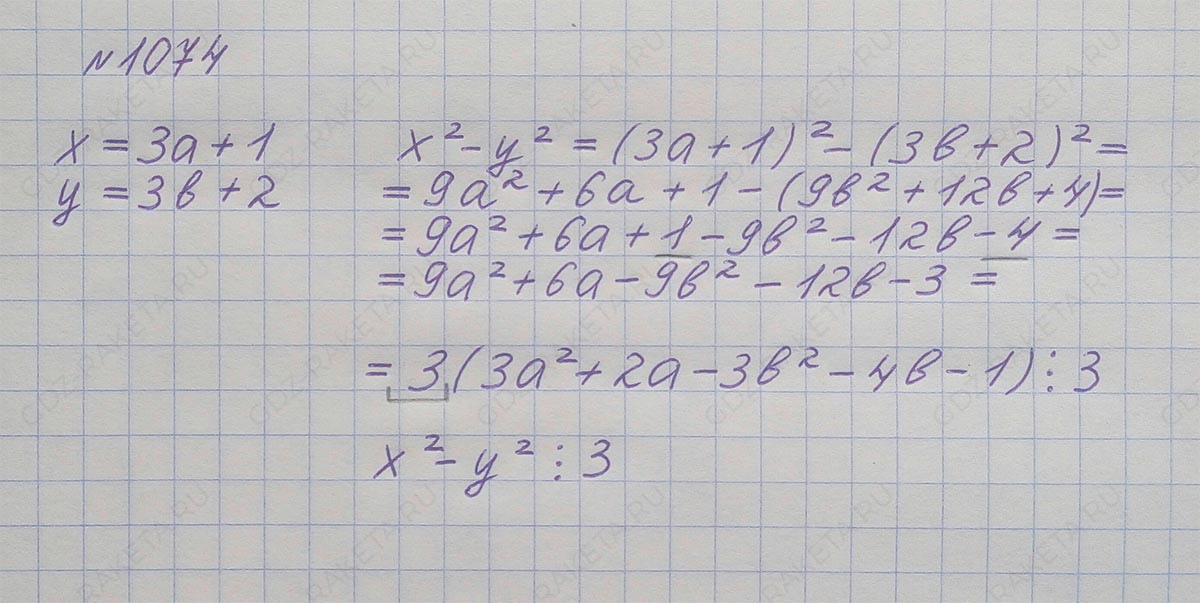 №1074
x = 3a + 1
y = 3в + 2
x² - y² = (3a + 1)² - (3в + 2)² =
= 9a² + 6a + 1 - (9в² + 12в + 4) =
= 9a² + 6a + 1 - 9в² - 12в - 4 =
= 9a² + 6a - 9в² - 12в - 3 =
= 3(3a² + 2a - 3в² - 4в - 1) ⋮ 3
x² - y² ⋮ 3
GDZ-RAKETA.RU